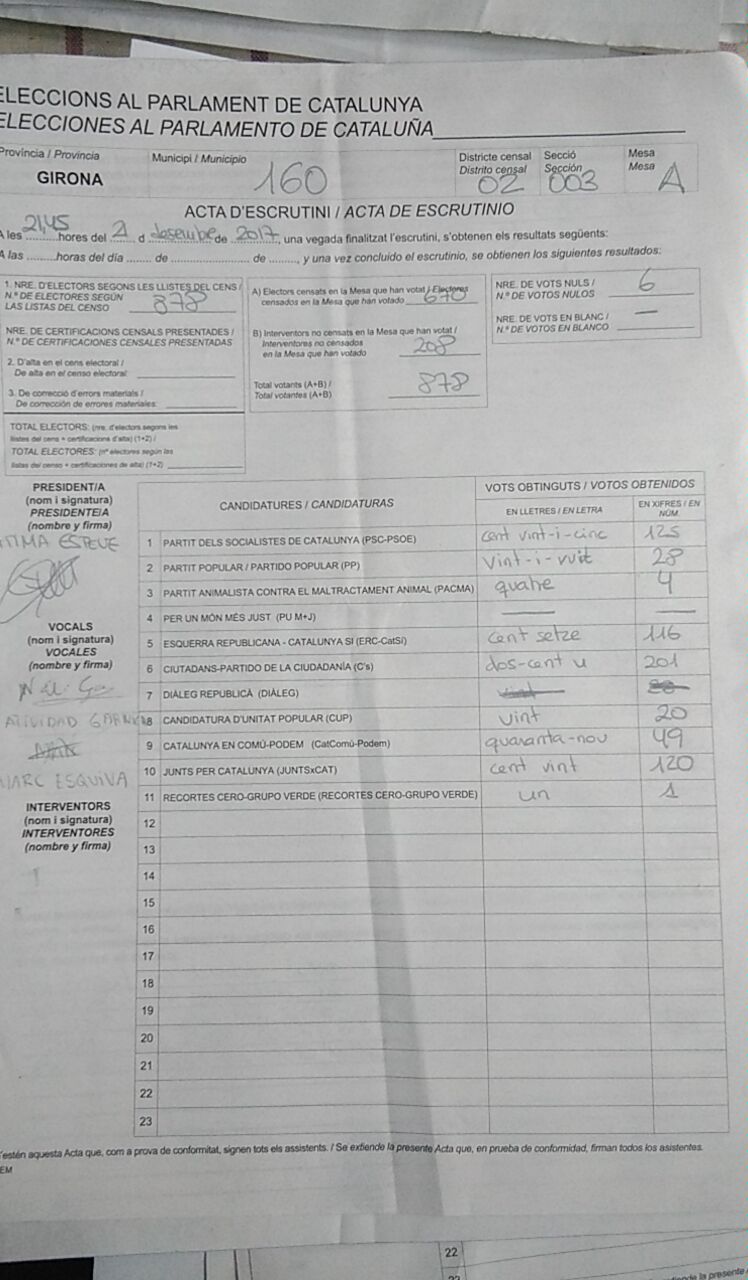 ELECCIONS AL PARLAMENT DE CATALUNYA
ELECCIONES AL PARLAMENTO DE CATALUÑA
Província / Provincia
GIRONA
Municipi / Municipio
160
Districte censal
Distrito censal
02
Secció
Sección
003
Mesa
Mesa
A
ACTA D'ESCRUTINI / ACTA DE ESCRUTINIO
A les 21,45 hores del 21 d desembre de 2017, una vegada finalitzat l'escrutini, s'obtenen els resultats següents:
A las ..........horas del día ....... de ........................ de ........., y una vez concluido el escrutinio, se obtienen los siguientes resultados:
1. NRE. D'ELECTORS SEGONS LES LLISTES DEL CENS /
N.º DE ELECTORES SEGÚN
LAS LISTAS DEL CENSO 878
NRE. DE CERTIFICACIONS CENSALS PRESENTADES /
N.º DE CERTIFICACIONES CENSALES PRESENTADAS
2. D'alta en el cens electoral /
De alta en el censo electoral:
3. De correcció d'errors materials /
De corrección de errores materiales:
TOTAL ELECTORS: (nre. d'electors segons les
llistes del cens + certificacions d'alta) (1+2) /
TOTAL ELECTORES: (nº electores según las
listas del censo + certificaciones de alta) (1+2)
A) Electors censats en la Mesa que han votat / Electores
censados en la Mesa que han votado 670
B) Interventors no censats en la Mesa que han votat /
Interventores no censados
en la Mesa que han votado 208
Total votants (A+B) /
Total votantes (A+B) 878
NRE. DE VOTS NULS /
N.º DE VOTOS NULOS 6
NRE. DE VOTS EN BLANC /
N.º DE VOTOS EN BLANCO —
PRESIDENT/A
(nom i signatura)
PRESIDENTE/A
(nombre y firma)
ESTEVE
VOCALS
(nom i signatura)
VOCALES
(nombre y firma)
MARC ESQUIVA
INTERVENTORS
(nom i signatura)
INTERVENTORES
(nombre y firma)
CANDIDATURES / CANDIDATURAS
VOTS OBTINGUTS / VOTOS OBTENIDOS
EN LLETRES / EN LETRA
EN XIFRES / EN NÚM.
1 PARTIT DELS SOCIALISTES DE CATALUNYA (PSC-PSOE) cent vint-i-cinc 125
2 PARTIT POPULAR / PARTIDO POPULAR (PP) vint-i-vuit 28
3 PARTIT ANIMALISTA CONTRA EL MALTRACTAMENT ANIMAL (PACMA) quatre 4
4 PER UN MÓN MÉS JUST (PU M+J) — —
5 ESQUERRA REPUBLICANA - CATALUNYA SI (ERC-CatSí) cent setze 116
6 CIUTADANS-PARTIDO DE LA CIUDADANÍA (C's) dos-cent u 201
7 DIÀLEG REPUBLICÀ (DIÀLEG) vint 20
8 CANDIDATURA D'UNITAT POPULAR (CUP) vint 20
9 CATALUNYA EN COMÚ-PODEM (CatComú-Podem) quaranta-nou 49
10 JUNTS PER CATALUNYA (JUNTSxCAT) cent vint 120
11 RECORTES CERO-GRUPO VERDE (RECORTES CERO-GRUPO VERDE) un 1
12
13
14
15
16
17
18
19
20
21
22
23
S'estén aquesta Acta que, com a prova de conformitat, signen tots els assistents. / Se extiende la presente Acta que, en prueba de conformidad, firman todos los asistentes.
EM
22